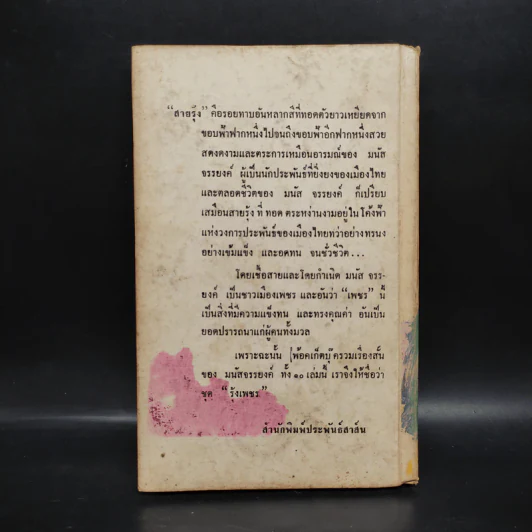 “สายรุ้ง” คือรอยทาบอันหลากสีที่ทอดตัวยาวเหยียดจาก
ขอบฟ้าฟากหนึ่งไปจนถึงขอบฟ้าอีกฟากหนึ่งสวย
สดงดงามและตระการเหมือนอารมณ์ของ มนัส
จรรยงค์ ผู้เป็นนักประพันธ์ที่ยิ่งยงของเมืองไทย
และตลอดชีวิตของ มนัส จรรยงค์ ก็เปรียบ
เสมือนสายรุ้ง ที่ ทอด ตระหง่านงามอยู่ในโค้งฟ้า
แห่งวงการประพันธ์ของเมืองไทยทว่าอย่างทรนง
อย่างเข้มแข็ง และอดทน จนชั่วชีวิต...
โดยเชื้อสายและโดยกำเนิด มนัส จรร-
ยงค์ เป็นชาวเมืองเพชร และอันว่า “เพชร” นี้
เป็นสิ่งที่มีความแข็งทน และทรงคุณค่า อันเป็น
ยอดปรารถนาแก่ผู้คนทั้งมวล
เพราะฉะนั้น พ้อคเก็ตบุ๊ครวมเรื่องสั้น
ของ มนัสจรรยงค์ ทั้ง ๑๐ เล่มนี้ เราจึงให้ชื่อว่า
ชุด “รุ้งเพชร”
สำนักพิมพ์ประพันธ์สาส์น